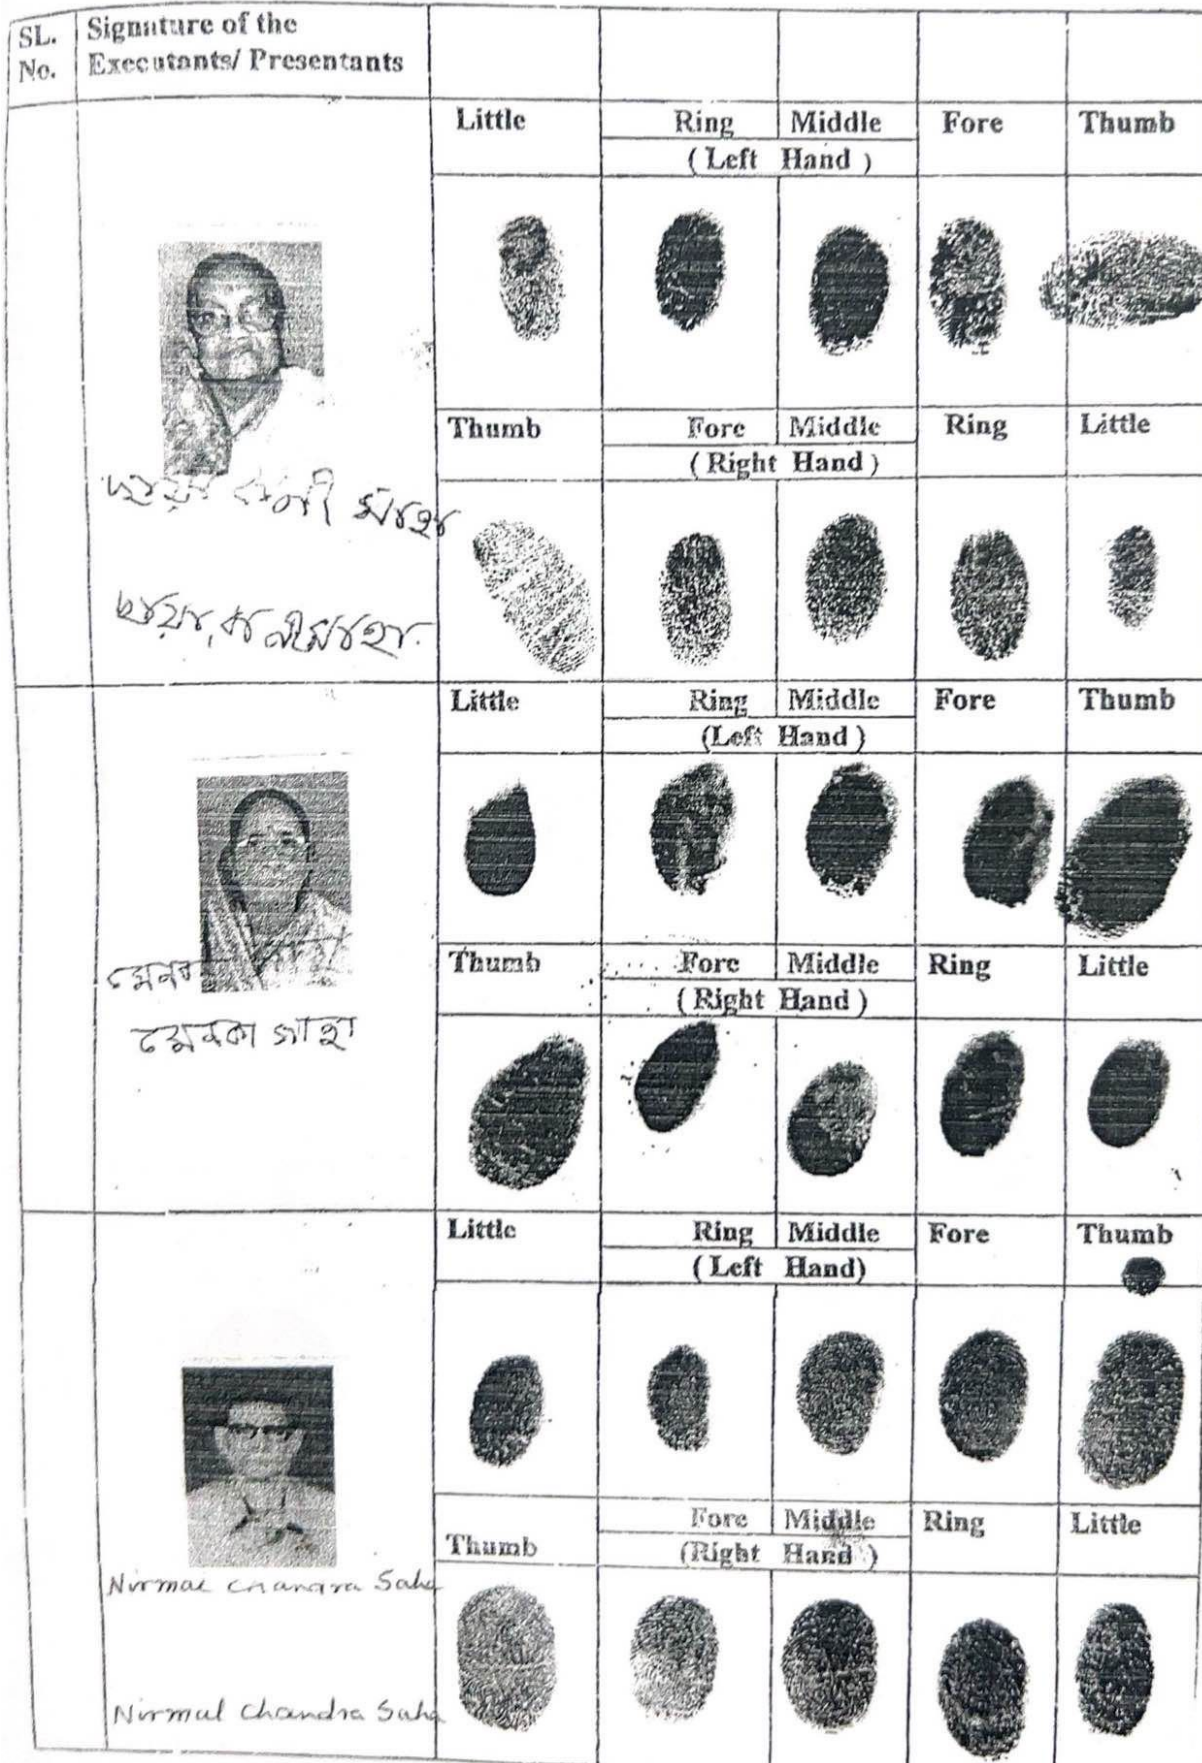 SL. No.
Signature of the Executants/ Presentants
Little Ring Middle Fore Thumb
( Left Hand )
Thumb Fore Middle Ring Little
( Right Hand )
ছায়া রানী সাহা
ছায়া রানী সাহা
Little Ring Middle Fore Thumb
(Left Hand )
Thumb Fore Middle Ring Little
( Right Hand )
মেনকা
মেনকা সাহা
Little Ring Middle Fore Thumb
( Left Hand)
Fore Middle Ring Little
Thumb (Right Hand )
Nirmal Chandra Saha
Nirmal Chandra Saha